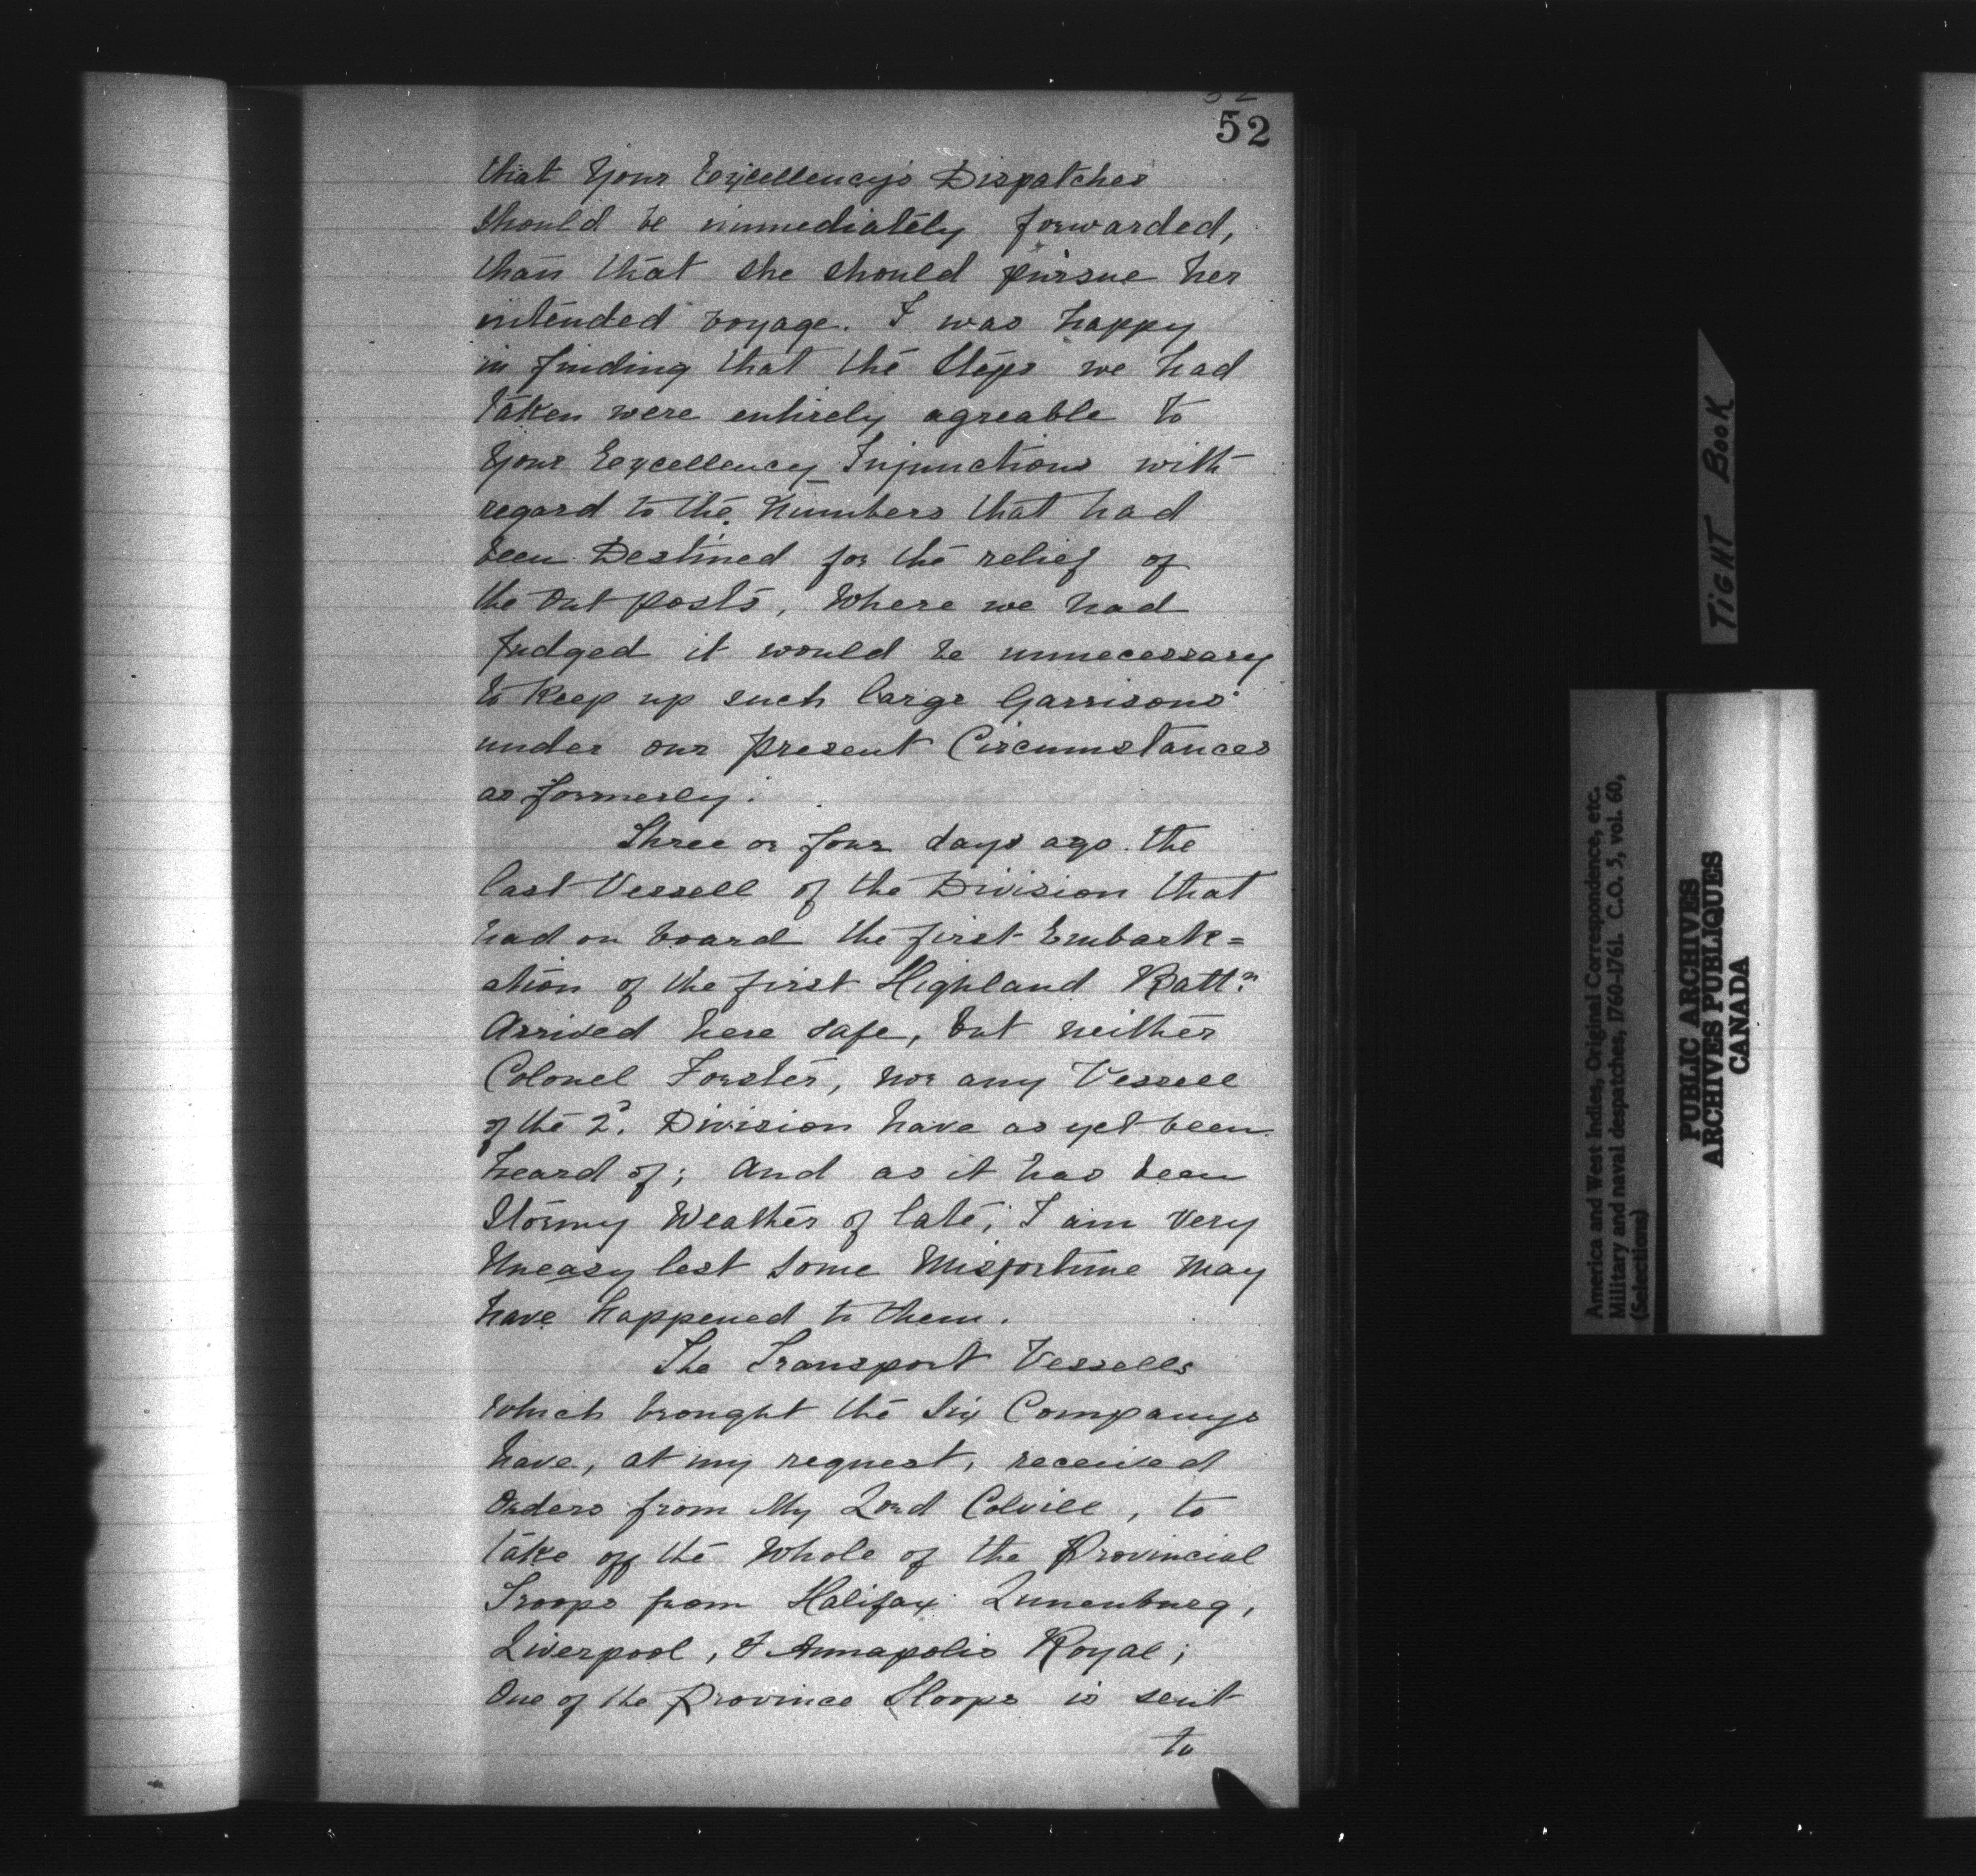 52
that Your Excellency's Dispatches
should be immediately forwarded,
than that she should pursue her
intended voyage. I was happy
in finding that the Steps we had
taken were entirely agreable to
Your Excellency Injunctions with
regard to the Numbers that had
been Destined for the relief of
the Out posts, Where we had
Judged it would be unnecessary
to Keep up such large Garrisons
under our present Circumstances
as formerly.
Three or four days ago the
last Vessell of the Division that
had on board the first Embark=
ation of the first Highland Battn.
Arrived here safe, but neither
Colonel Forster, nor any Vessell
of the 2d. Division have as yet been
heard of; And as it has been
Stormy Weather of late, I am Very
Uneasy lest Some Misfortune May
have happened to them.
The Transport Vessells
Which brought the Six Companys
have, at my request, received
Orders from My Lord Colvill, to
take off the Whole of the Provincial
Troops from Halifax Lunenburg,
Liverpool, & Annapolis Royal;
One of the Province Sloops is sent
to
TIGHT BOOK
America and West Indies, Original Correspondence, etc.
Military and naval despatches, 1760-1761. C.O. 5, vol. 60,
(Selections)
PUBLIC ARCHIVES
ARCHIVES PUBLIQUES
CANADA